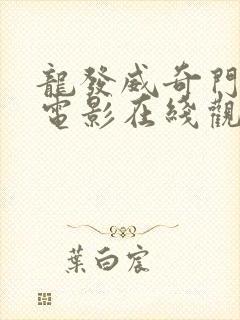 龍發威奇門
電影在綫觀
葉白宸